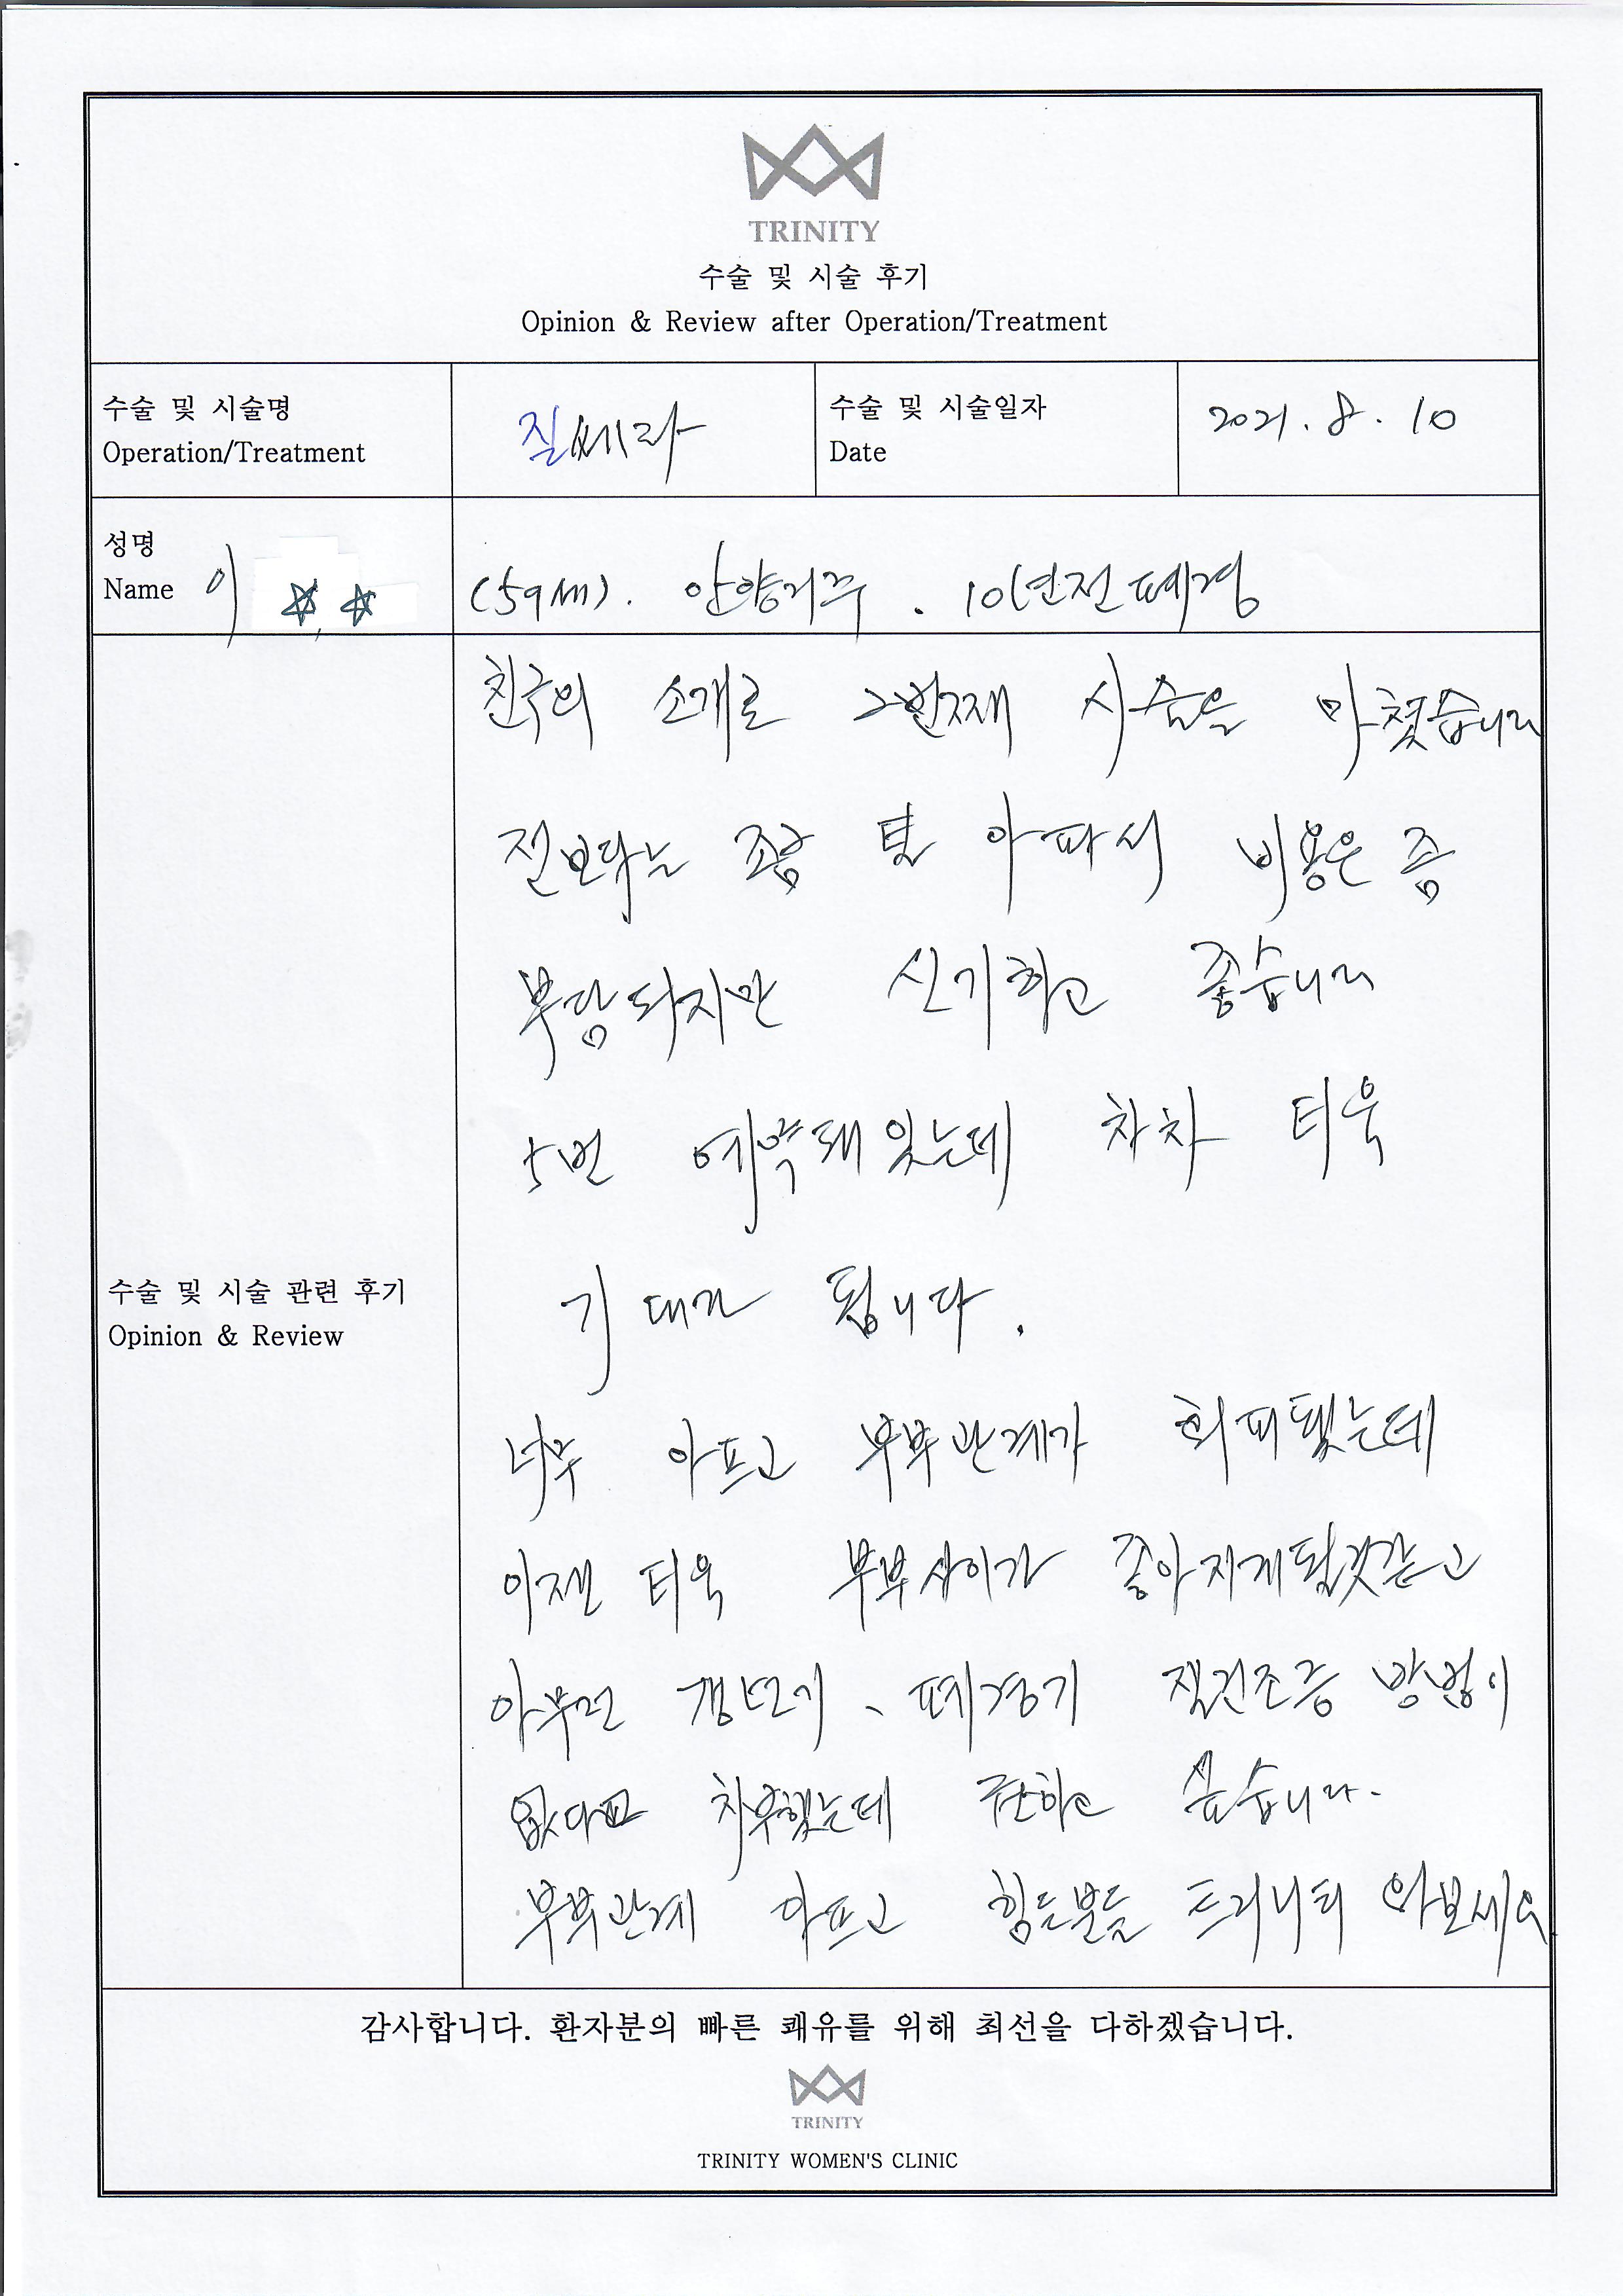 TRINITY
수술 및 시술 후기
Opinion & Review after Operation/Treatment
수술 및 시술명
Operation/Treatment
질쎄라
수술 및 시술일자
Date
2021. 8. 10
성명
Name 이 ☆☆
(59세). 안양거주. 10년전 폐경
친구의 소개로 2번째 시술을 마쳤습니다
전보다는 조금 덜 아파서 비용은 좀
부담되지만 신기하고 좋습니다
5번 예약돼 있는데 차차 더욱
기대가 됩니다.
너무 아프고 부부관계가 회피됐는데
이젠 더욱 부부사이가 좋아지게 될것같고
아무런 갱년기、폐경기 질건조증 방법이
없다고 치부했는데 권하고 싶습니다.
부부관계 아프고 힘든분들 트리니티 와보세요
수술 및 시술 관련 후기
Opinion & Review
감사합니다. 환자분의 빠른 쾌유를 위해 최선을 다하겠습니다.
TRINITY
TRINITY WOMEN'S CLINIC